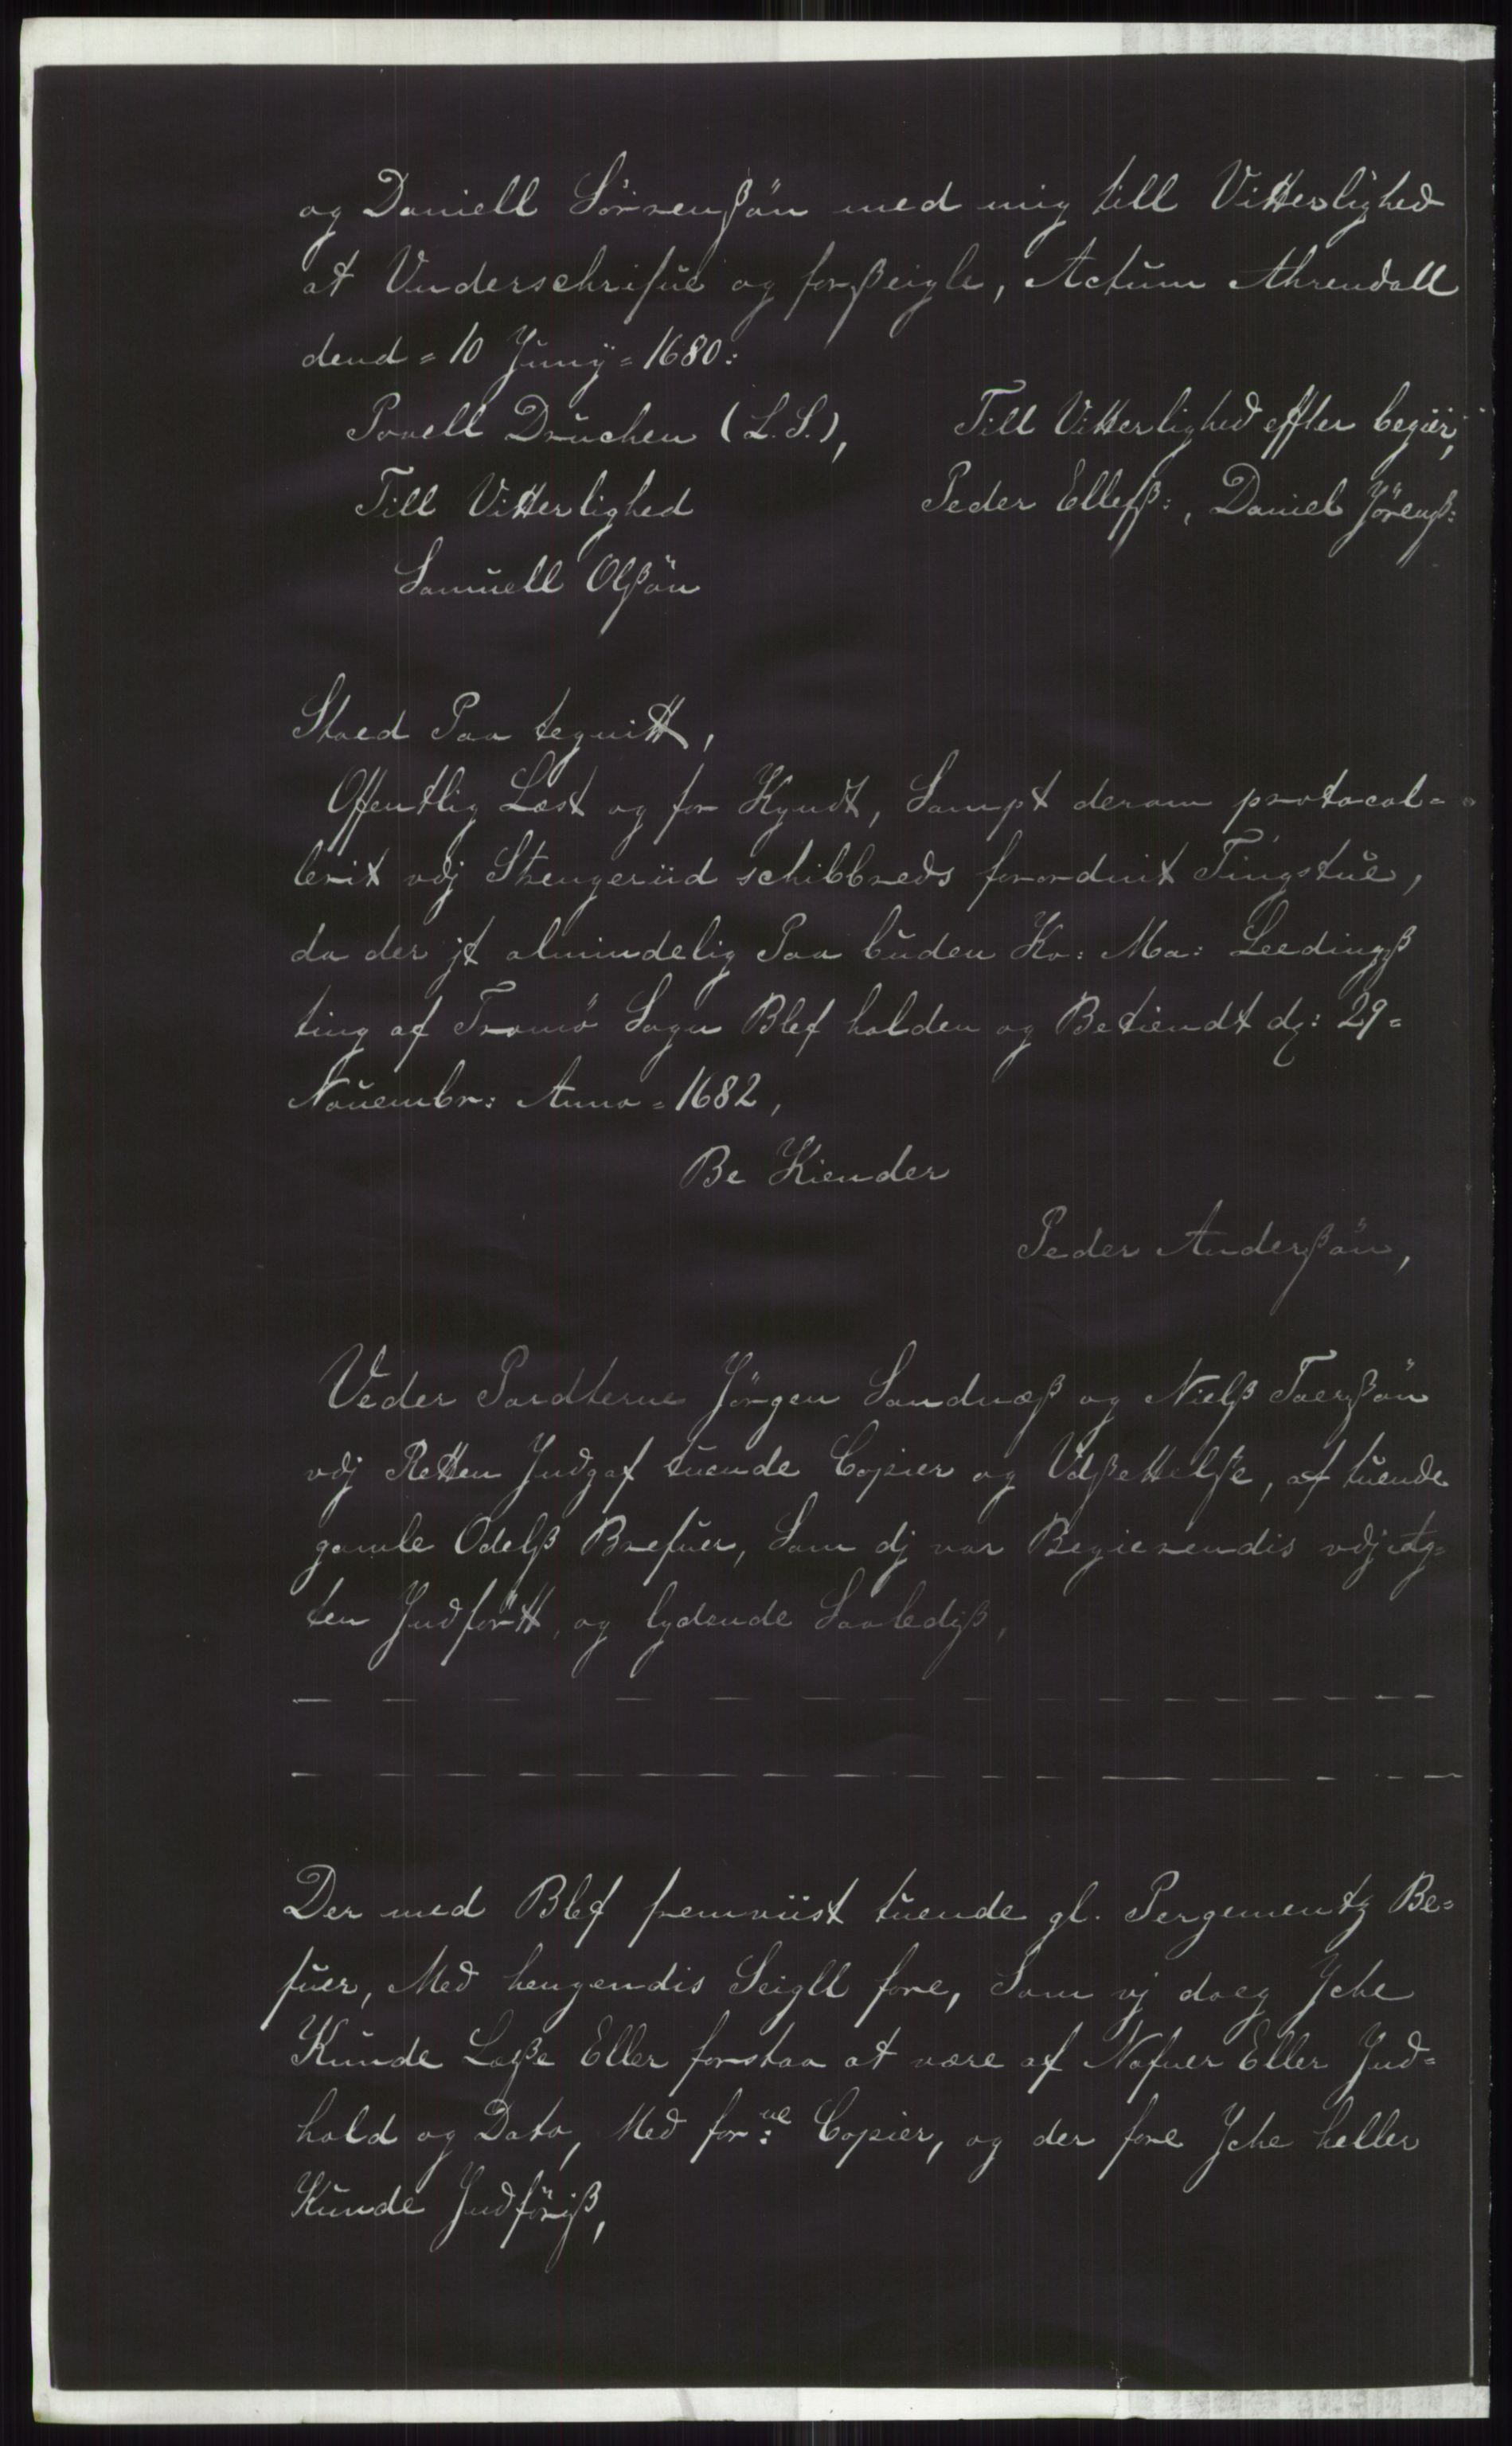 og Daniell Sörrenßön med mig till Vitterlighed
at Vnderschrifue og forßeigle, Actum Ahrendall
dend = 10 Junÿ = 1680:
Povell Druchen (L. S.), Till Vitterlighed effter begiër,
Till Vitterlighed Peder Elleffß:, Daniel Jörenß:
Samuell Olßön
Stoed Paa tegnitt,
Offentlig Læst og for Kyndt, Sampt derom protocol=
lerit vdj Strengeriid schibbreds forordnit Tingstue,
da der jt almindelig Paa buden Ko: Ma: Leedingß
ting af Tromö Sogn Blef holden og Betiendt dz: 29=
Nouembr: Anno = 1682,
Be Kiender
Peder Anderßön,
Veder Pardterne Jörgen Sandnæß og Nielß Taerßön
vdj Retten Jndgaf tuende Copier og Vdßettelße, af tuende
gamle Odelß Brefuer, Som dj var Begierendis vdj Ag=
ten Jndförtt, og lydende Saaledyß,
Der med Blef fremviist tuende gl. Pergementz Be=
fuer, Med hengendis Seigll fore, Som vj doeg Jche
Kunde Læße Eller forstaa at være af Nafuer Eller Jnd=
hold og Dato, Med for:ne Copier, og der fore Jche heller
Kunde Jndföriß,